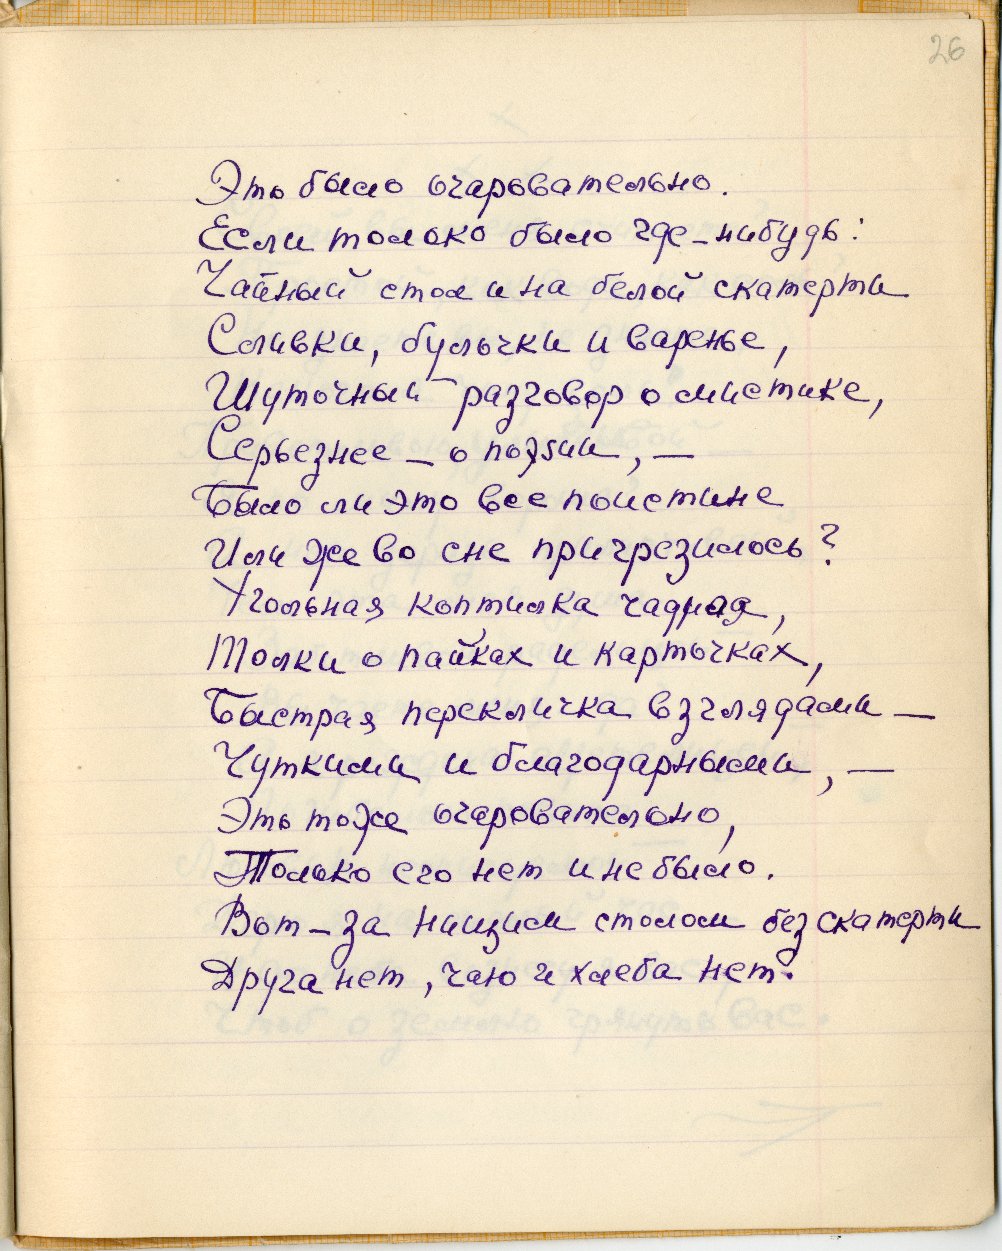 26
Это было очаровательно.
Если только было где-нибудь:
Чайный стол и на белой скатерти
Сливки, булочки и варенье,
Шуточный разговор о мистике,
Серьезнее – о поэзии, –
Было ли это все поистине
Или же во сне пригрезилось?
Угольная коптилка чадная,
Толки о пайках и карточках,
Быстрая перекличка взглядами –
Чуткими и благодарными, –
Это тоже очаровательно,
Только его нет и не было.
Вот – за нищим столом без скатерти
Друга нет, чаю и хлеба нет.